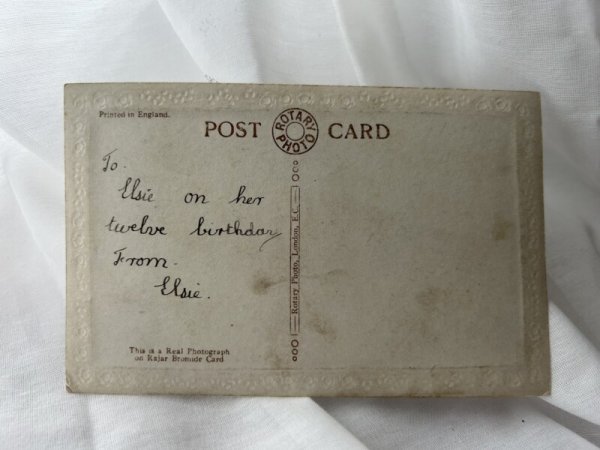 Printed in England.
POST ROTARY PHOTO CARD
To.
Elsie on her
twelve birthday
From.
Elsie.
Rotary Photo, London, E.C.
This is a Real Photograph
on Kajar Bromide Card